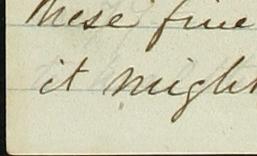 these fine
it might